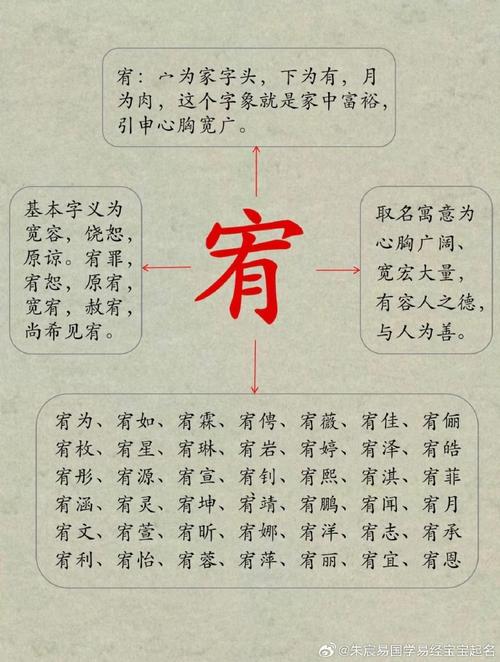 宥：宀为家字头，下为有，月
为肉，这个字象就是家中富裕，
引申心胸宽广。
基本字义为
宽容，饶恕，
原谅。宥罪，
宥恕，原宥，
宽宥，赦宥，
尚希见宥。
宥
取名寓意为
心胸广阔、
宽宏大量，
有容人之德，
与人为善。
宥为、宥如、宥霖、宥俜、宥薇、宥佳、宥俪
宥枚、宥星、宥琳、宥岩、宥婷、宥泽、宥皓
宥彤、宥源、宥宣、宥钊、宥熙、宥淇、宥菲
宥涵、宥灵、宥坤、宥靖、宥鹏、宥闻、宥月
宥文、宥萱、宥昕、宥娜、宥洋、宥志、宥承
宥利、宥怡、宥蓉、宥萍、宥丽、宥宜、宥恩
@朱宸易国学易经宝宝起名